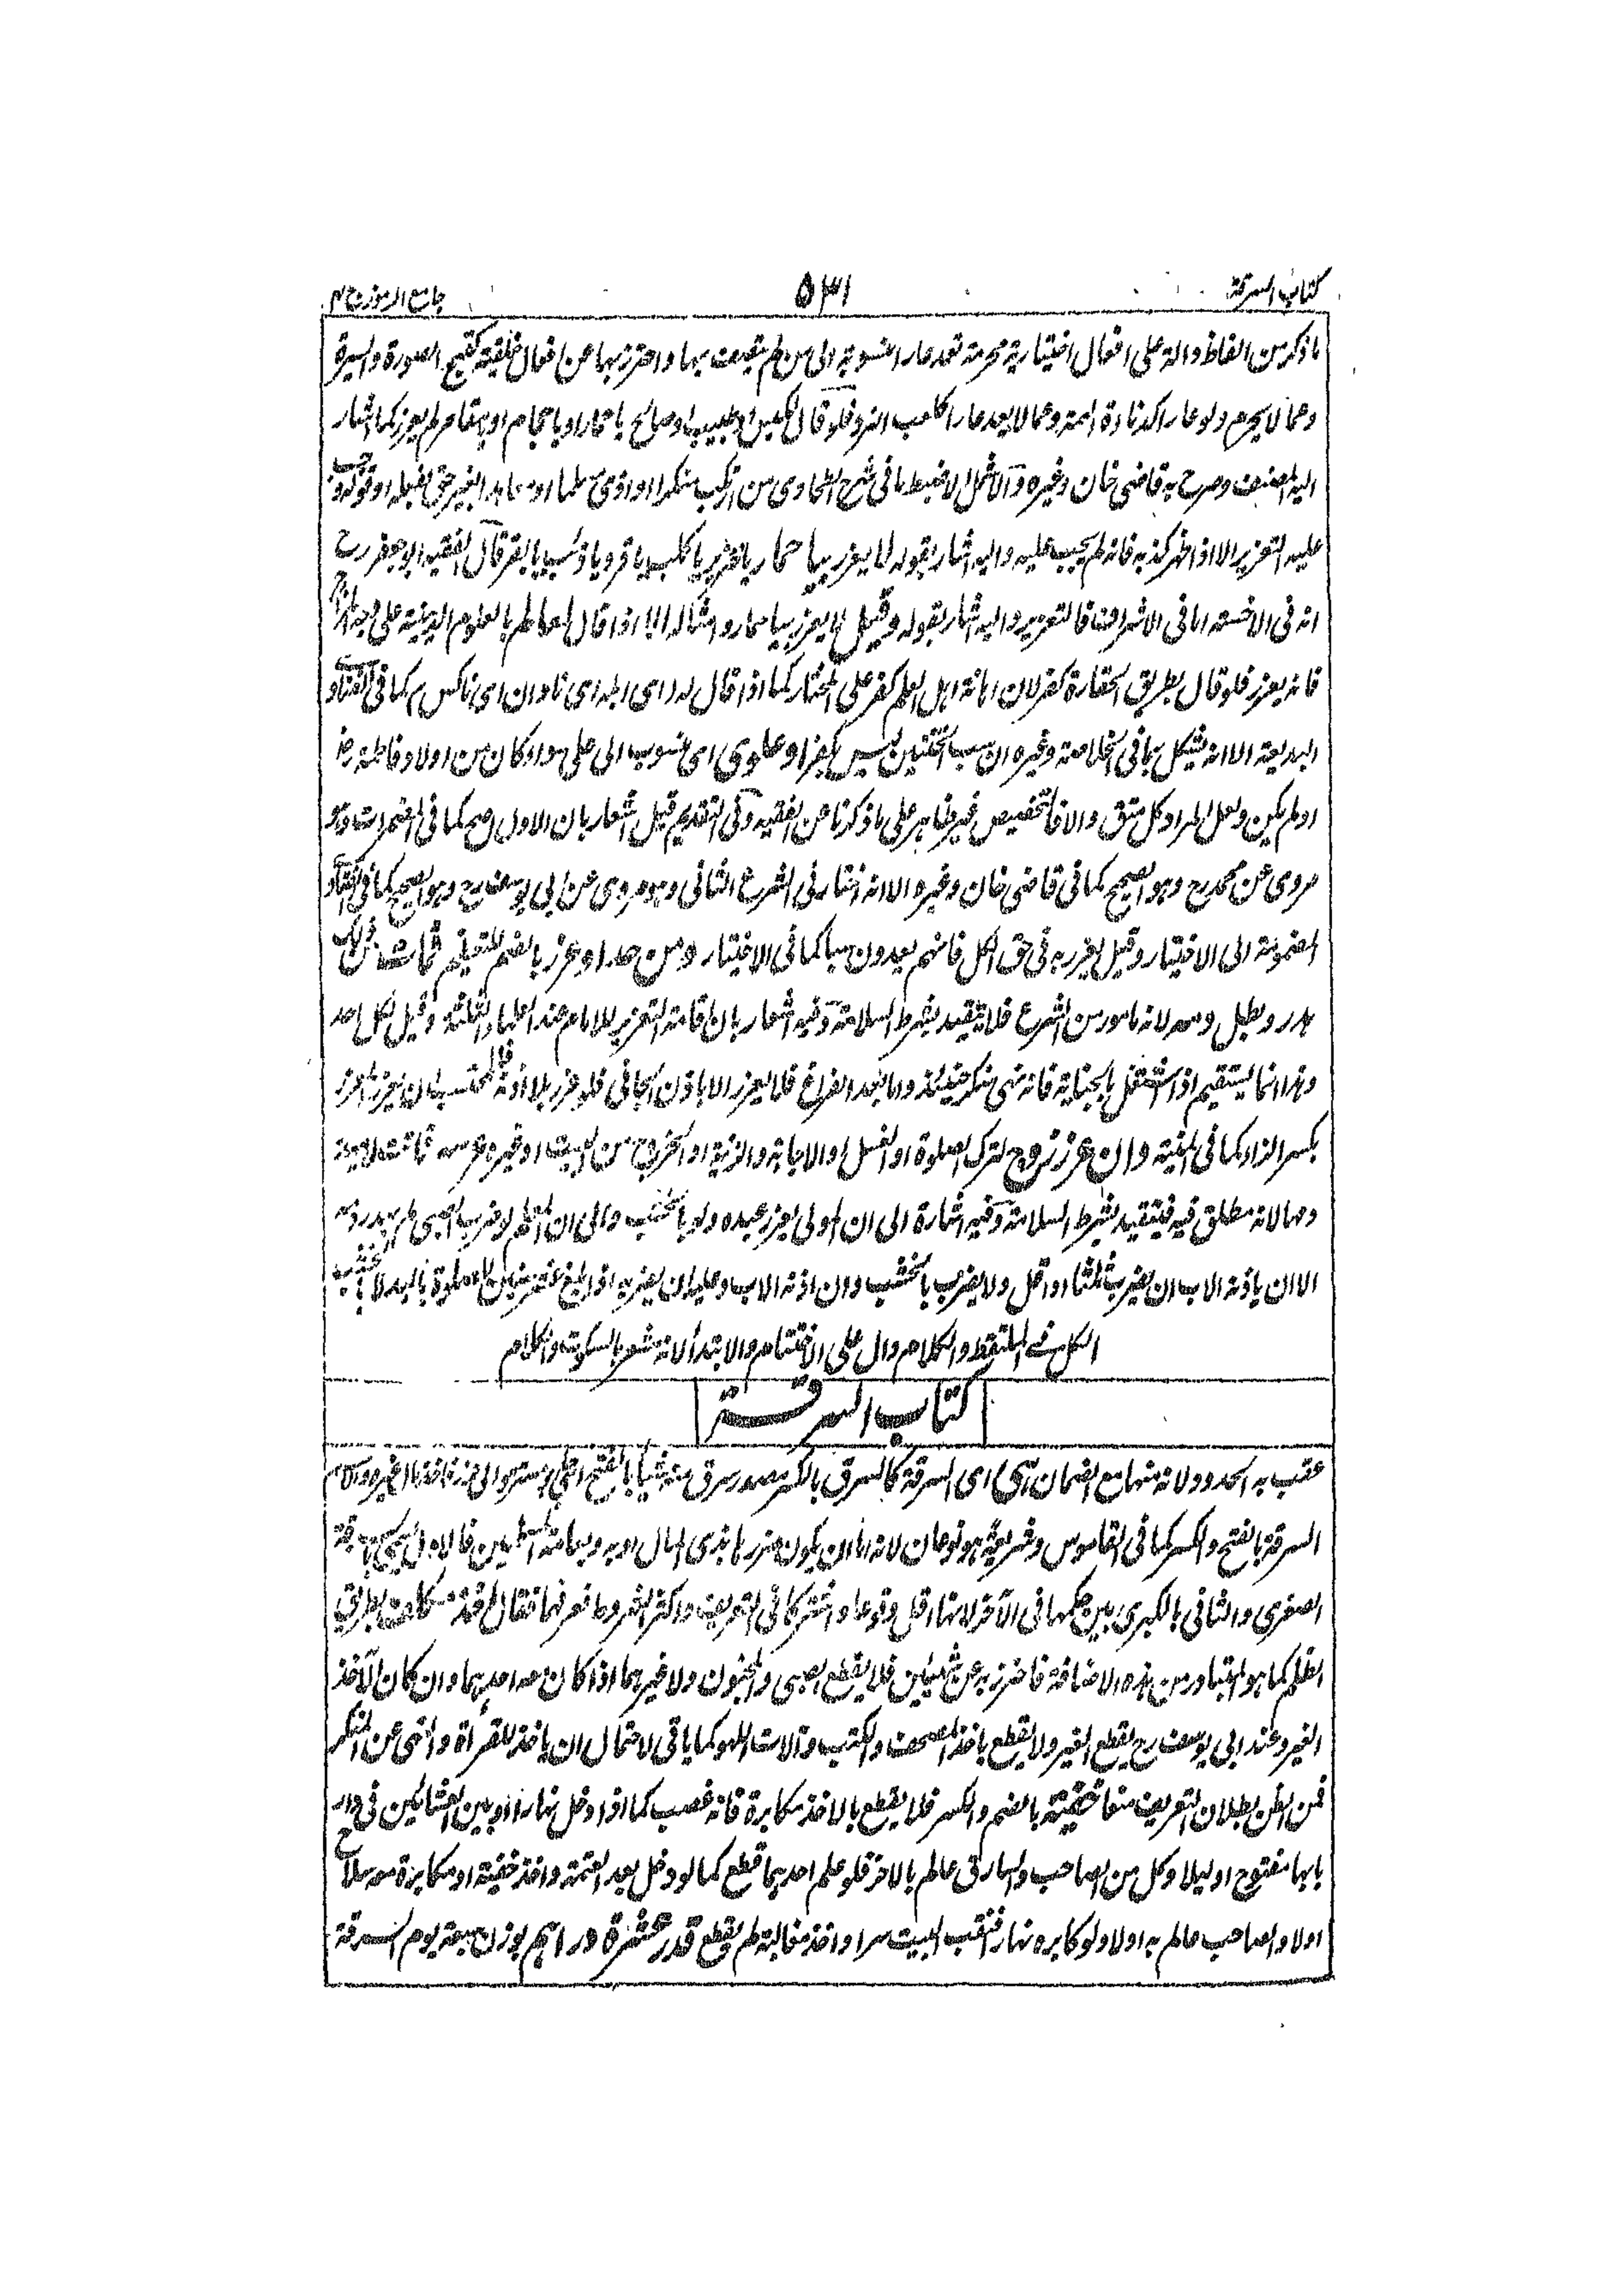 كتاب السرقة ٥٣١ جامع الرموز ج ٢
ما ذكر من الفاظ دالة على افعال اختيارية محرمة تعد عارا منسوبة الى من لم يتصف بها واحترز بها عن افعال خلقية كقبح الصورة والسيرة
وعما لا يحرم ولو عارا كدناءة الهمة وعما لا يعد عارا كلعب النرد فلو قال او طبيب او صالح يا حمار او يا حجام او يا مقامر لم يعزر كما اشار
اليه المصنف وصرح به قاضي خان وغيره والاشمل الاضبط ما في شرح الطحاوي من ارتكب منكرا او اوذى مسلما بغير حق بفعله او قوله وجب
عليه التعزير الا اذا ظهر كذبه فانه لم يجب عليه واليه اشار بقوله لا يعزر بيا حمار يا خنزير يا كلب يا قرد يا ذئب يا بقر قال الفقيه ابو جعفر رح
انه في الاخسة اما في الاشراف فالتعزير واليه اشار بقوله وقيل لا يعزر بيا حمار وامثاله الا اذا قال لعالم بالعلوم الدينية على وجه المزاح
فانه يعزر فلو قال بطريق الحقارة كفر لان اهانة اهل العلم كفر على المختار كما اذا قال له اى ابله اى نادان اى ناكس م كما في الفتاوى
البديعة الا انه يشكل بما في الخلاصة وغيره ان سب الختنين ليس بكفر او علوى اى منسوب الى على سواء كان من اولاد فاطمة رض
او لم يكن ولعل المراد كل متق والا فالتخصيص غير ظاهر على ما ذكرنا عن الفقيه وفي التقديم قبل اشعار بان الاول اصح كما في المضمرات وهو
مروى عن محمد رح وهو الصحيح كما في قاضي خان وغيره الا انه اختار في الشرع الثاني وهو مروى عن ابي يوسف رح وهو الصحيح كما في الفتاوى
المضمومة الى الاختيار وقيل يعزر به في حق الكل فانهم يعدون سبا كما في الاختيار ومن حد او عزر بالضم للتعليم فمات من ذلك
هدر وبطل دمه لانه مامور من الشرع فلا يتقيد بشرط السلامة وفيه اشعار بان اقامة التعزير للامام عند العلماء الثلثة وقيل لكل احد
وهذا انما يستقيم اذا اشتغل بالجناية فانه نهى منكر حينئذ واما بعد الفراغ فلا يعزر الا باذن الجاني فلو عزر بلا اذنه فللمحتسب ان يعزر المعزر
بكسر الزاء كما في المنية وان عزر زوج لترك الصلوة او الغسل او الاجابة والزينة او الخروج من البيت او غيره عرسه فماتت لا يهدر
دمها لانه مطلق فيه فيتقيد بشرط السلامة وفيه اشارة الى ان المولى يعزر عبده ولو بالخشب والى ان المعلم لو ضرب الصبي لم يهدر دمه
الا ان ياذنه الاب ان يضرب ثلثا او اقل ولا يضرب بالخشب وان اذنه الاب وعليه ان يضربه اذا بلغ عشر سنين للصلوة باليد لا بالخشب
الكل في الملتقط والكلام دال على الاختتام والابتداء لانه مشعر بالسكوت والكلام
كتاب السرقة
عقب به الحدود لانه منها مع الضمان هى اى السرقة كالسرق بالكسر مصدر سرق منه شيئا بالفتح اى جاء مستترا الى حرز فاخذ مال غيره والاسم
السرقة بالفتح والكسر كما في القاموس وشريعة هو نوعان لانه اما ان يكون ضررها بذى المال او به وبعامة المسلمين فالاول يسمى بالسرقة
الصغرى والثاني بالكبرى بين حكمها في الآخر لانها اقل وقوعا واشتركا في التعريف واكثر الشروط فعرفهما فقال اخذ مكلف بطريق
الظلم كما هو المتبادر من هذه الاضافة فاحترز به عن شيئين فلا يقطع الصبي والمجنون ولا غيرهما اذا كان معه احدهما وان كان الآخذ
الغير وعند ابي يوسف رح يقطع الغير ولا يقطع باخذ المصحف والكتب وآلات اللهو كما ياتي لاحتمال ان ياخذ للقراءة والنهى عن المنكر
فمن الظن بطلان التعريف منعا خفية بالضم والكسر فلا يقطع بالاخذ مكابرة فانه غصب كما اذا دخل نهارا او بين العشائين في دار
بابها مفتوح او ليلا وكل من الصاحب والسارق عالم بالاخر فلو علم احدهما قطع كما لو دخل بعد العتمة واخذ خفية او مكابرة معه سلاح
اولا والصاحب عالم به اولا ولو كابره نهارا فنقب البيت سرا واخذ مغالبة لم يقطع قدر عشرة دراهم بوزن سبعة يوم السرقة